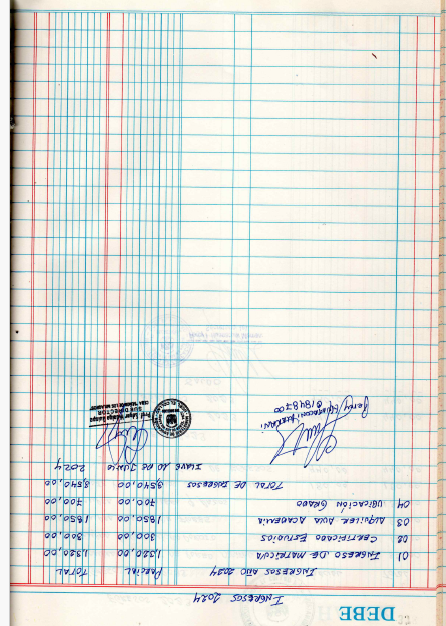 DEBE
INGRESOS 2024
INGRESOS AÑO 2024 PARCIAL TOTAL
01 INGRESO DE MATRICULA 1,320.00 1,320.00
02 CERTIFICADO ESTUDIOS 300,00 300,00
03 ALQUILER AULA ACADEMIA 1,850,00 1,850,00
04 UBICACIÓN GRADO 700,00 700,00
TOTAL DE INGRESOS 3,540,00 3,540,00
ILAVE 20 DE JUNIO 2024
SUB DIRECTOR
01848700